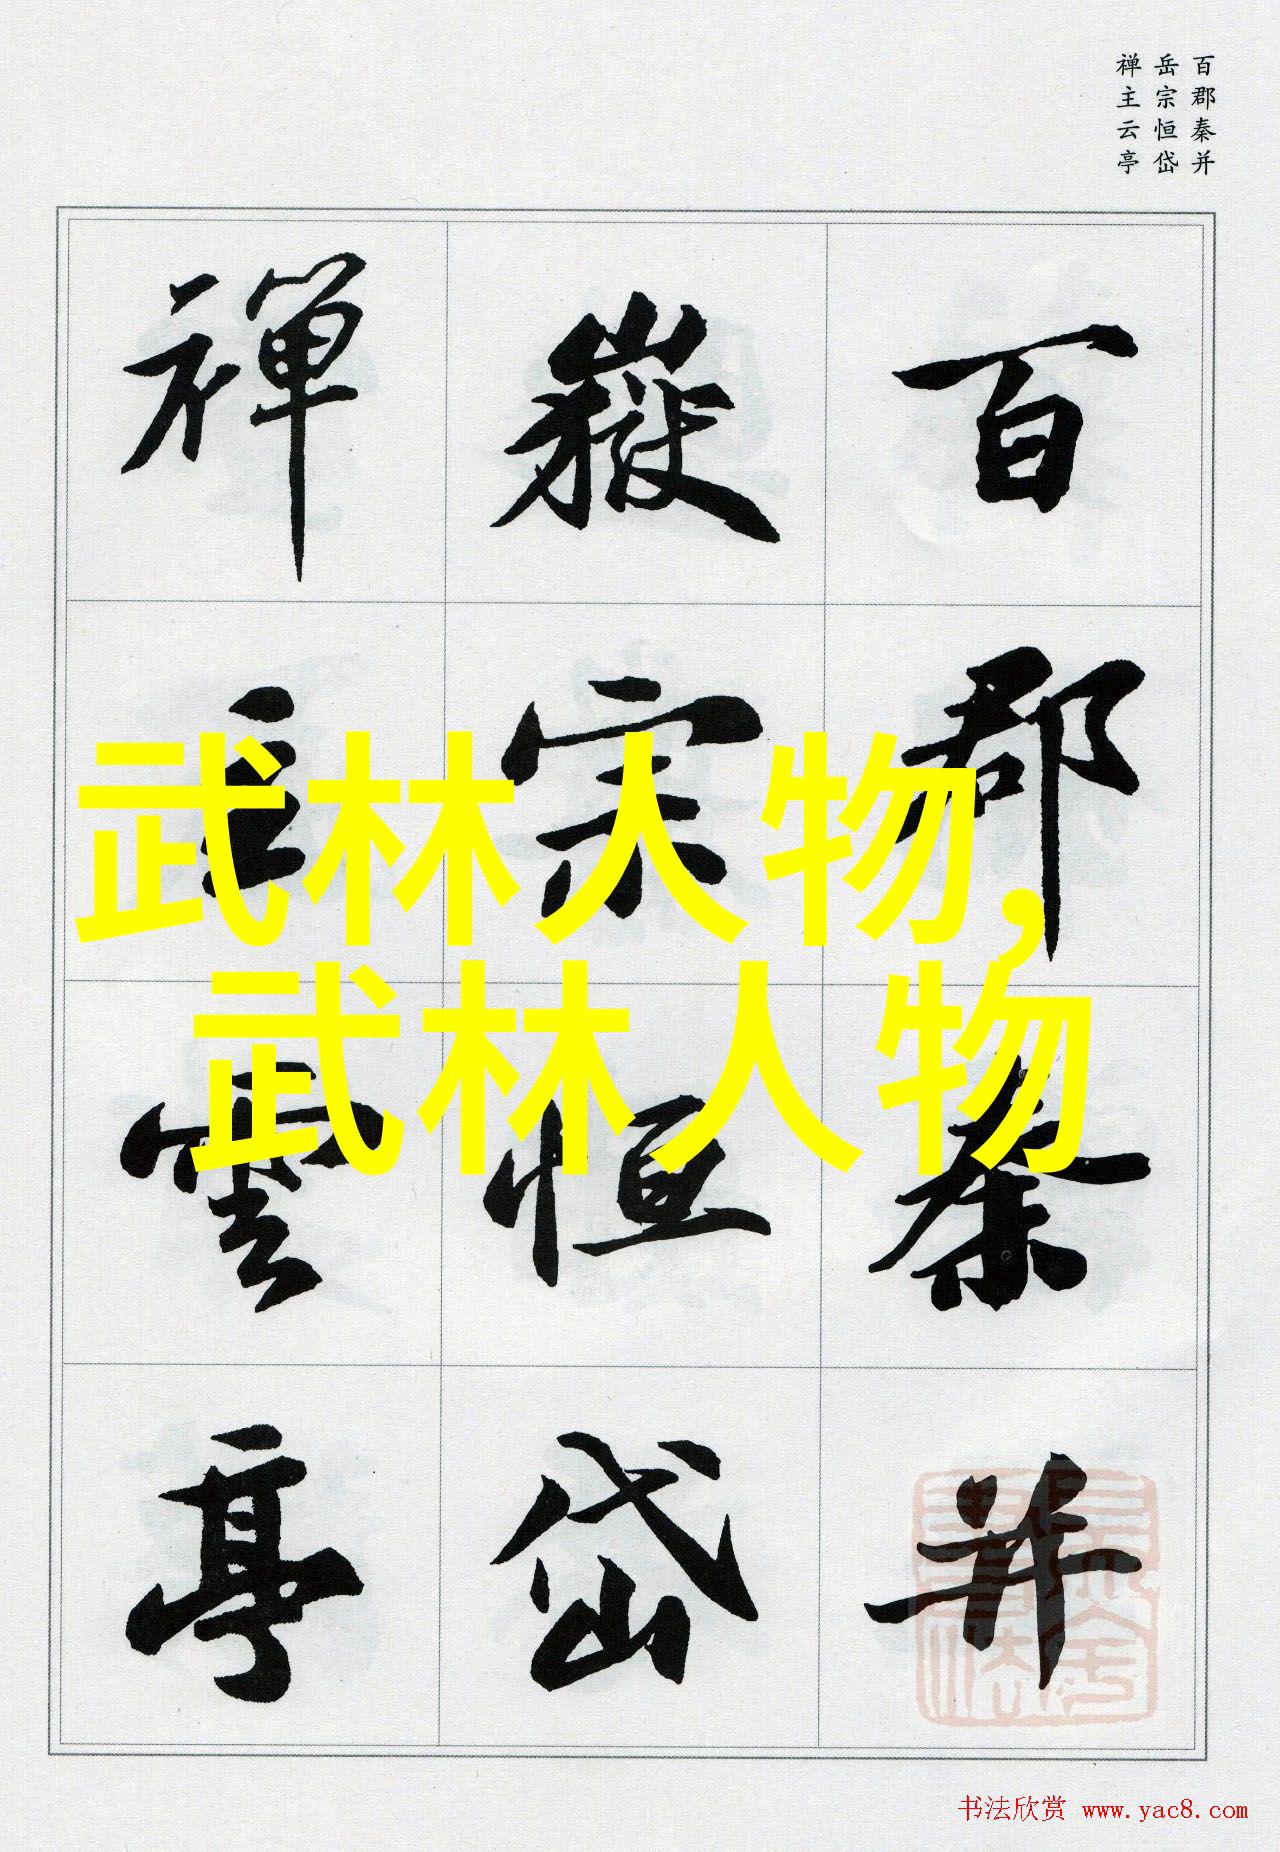 百郡秦并
岳宗恒岱
禅主云亭
百郡秦并
嶽宗恒岱
禪主雲亭
武林人物,
武林人物
书法欣赏 www.yac8.com